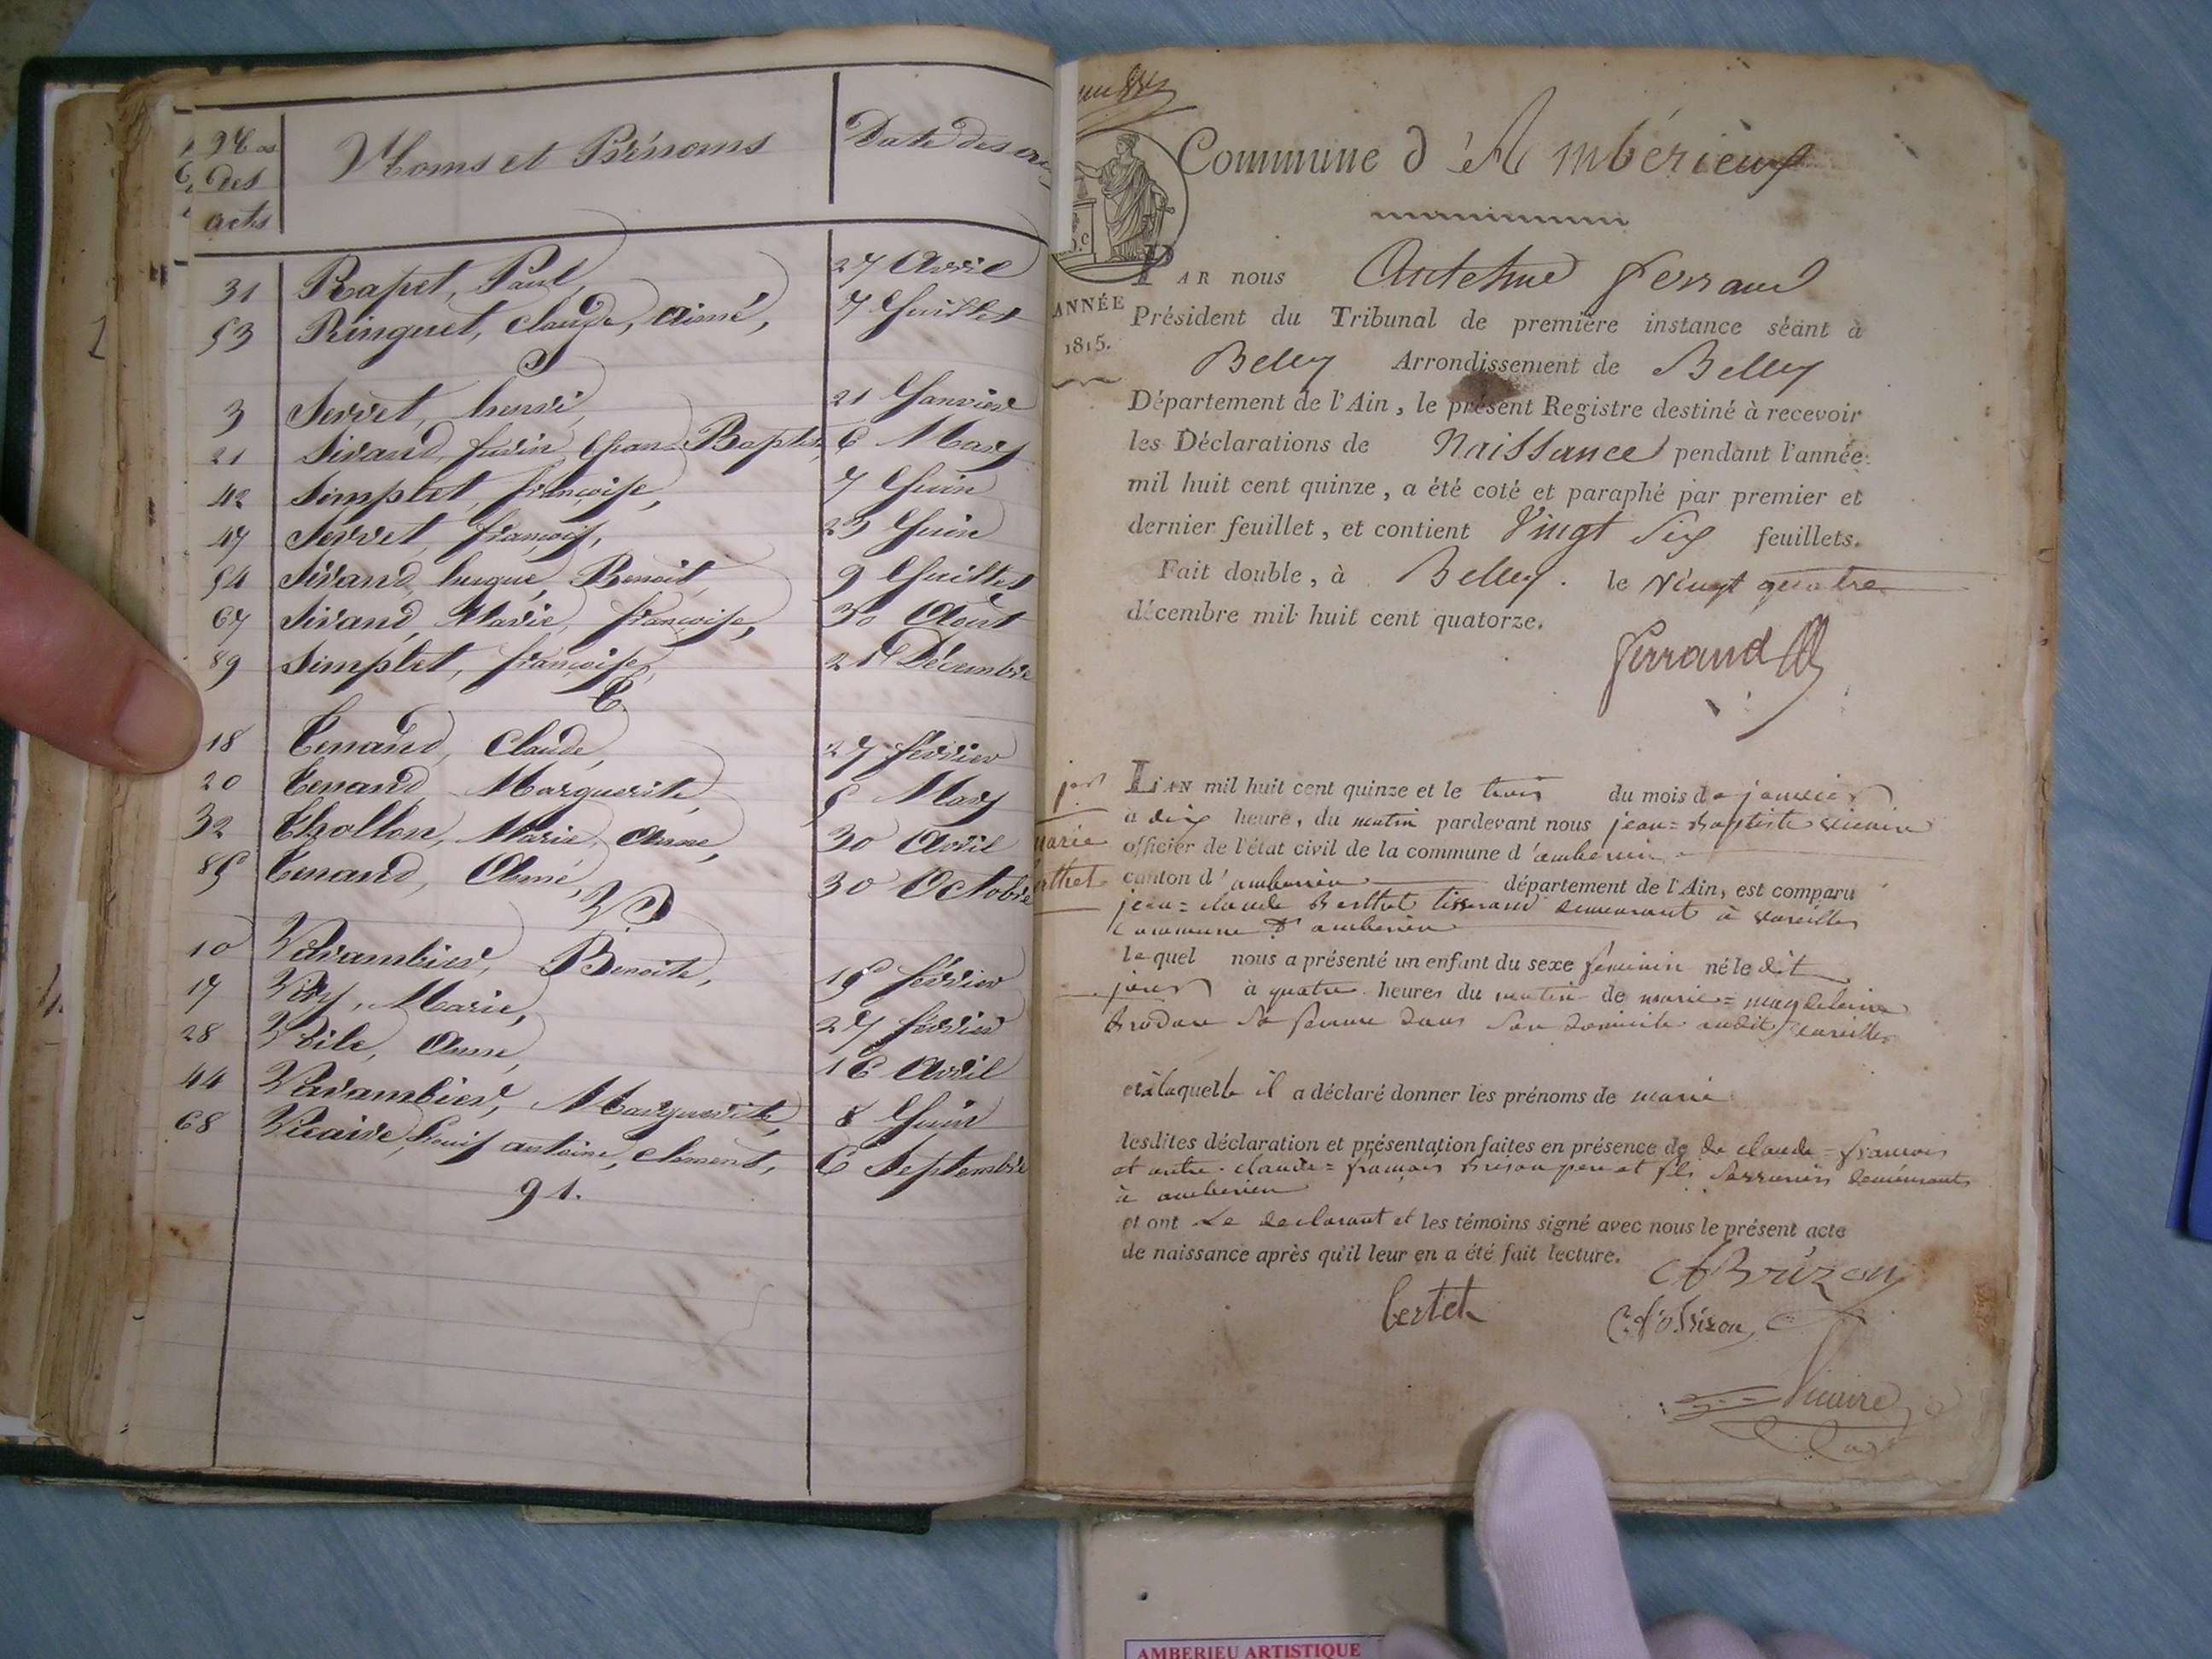 Nos
des
actes
Noms et Prénoms
Date des
31 Rapet, Paul, 27 Avril
53 Ringuet, Claude, Aimé, 7 Juillet
S
3 Servet, henri, 21 Janvier
21 Sivand, Jean Baptiste 6 Mars
42 Simplet, françoise, 7 Juin
47 Servet, françois, 23 Juin
54 Sivand, hugue, Benoit, 9 Juillet
67 Sivand, Marie, françoise, 30 Août
89 Simplet, françoise, Décembre
T
18 Tenand, Claude, 27 février
20 Tenand, Marguerite, 5 Mars
32 Thollon, Marie, Anne, 30 Avril
85 Tenand, Aimé, 30 Octobre
V
10 Varambier, Benoite, 15 février
17 Viry, Marie, 27 février
28 Vile, Anne, 16 Avril
44 Varambier, Marguerite, 8 Juin
68 Vicaire, Louis antoine, clément, 6 Septembre
91.
Commune d'Ambérieux
ANNÉE
1815.
PAR nous Antelme Ferrand
Président du Tribunal de première instance séant à
Belley Arrondissement de Belley
Département de l'Ain, le présent Registre destiné à recevoir
les Déclarations de Naissance pendant l'année
mil huit cent quinze, a été coté et paraphé par premier et
dernier feuillet, et contient Vingt Six feuillets.
Fait double, à Belley. le Vingt quatre
décembre mil huit cent quatorze.
Ferrand
marie
erthet
L'AN mil huit cent quinze et le trois du mois de janvier
à dix heure, du matin pardevant nous jean=Baptiste vicaire
officier de l'état civil de la commune d'amberieu
canton d'amberieu département de l'Ain, est comparu
jean=claude Berthet tisserand demeurant à vareilles
commune d'amberieu
lequel nous a présenté un enfant du sexe feminin né le dit
jour à quatre heures du matin de marie=magdelaine
sa femme dans son domicile audit vareilles
et à laquelle il a déclaré donner les prénoms de marie
lesdites déclaration et présentation faites en présence de de claude=francois
et autre claude=françois Brison pere et fils serruriers demeurants
à amberieu
et ont Le declarant et les témoins signé avec nous le présent acte
de naissance après qu'il leur en a été fait lecture.
Brizon
bertet
brizon
Vicaire
AMBERIEU ARTISTIQUE